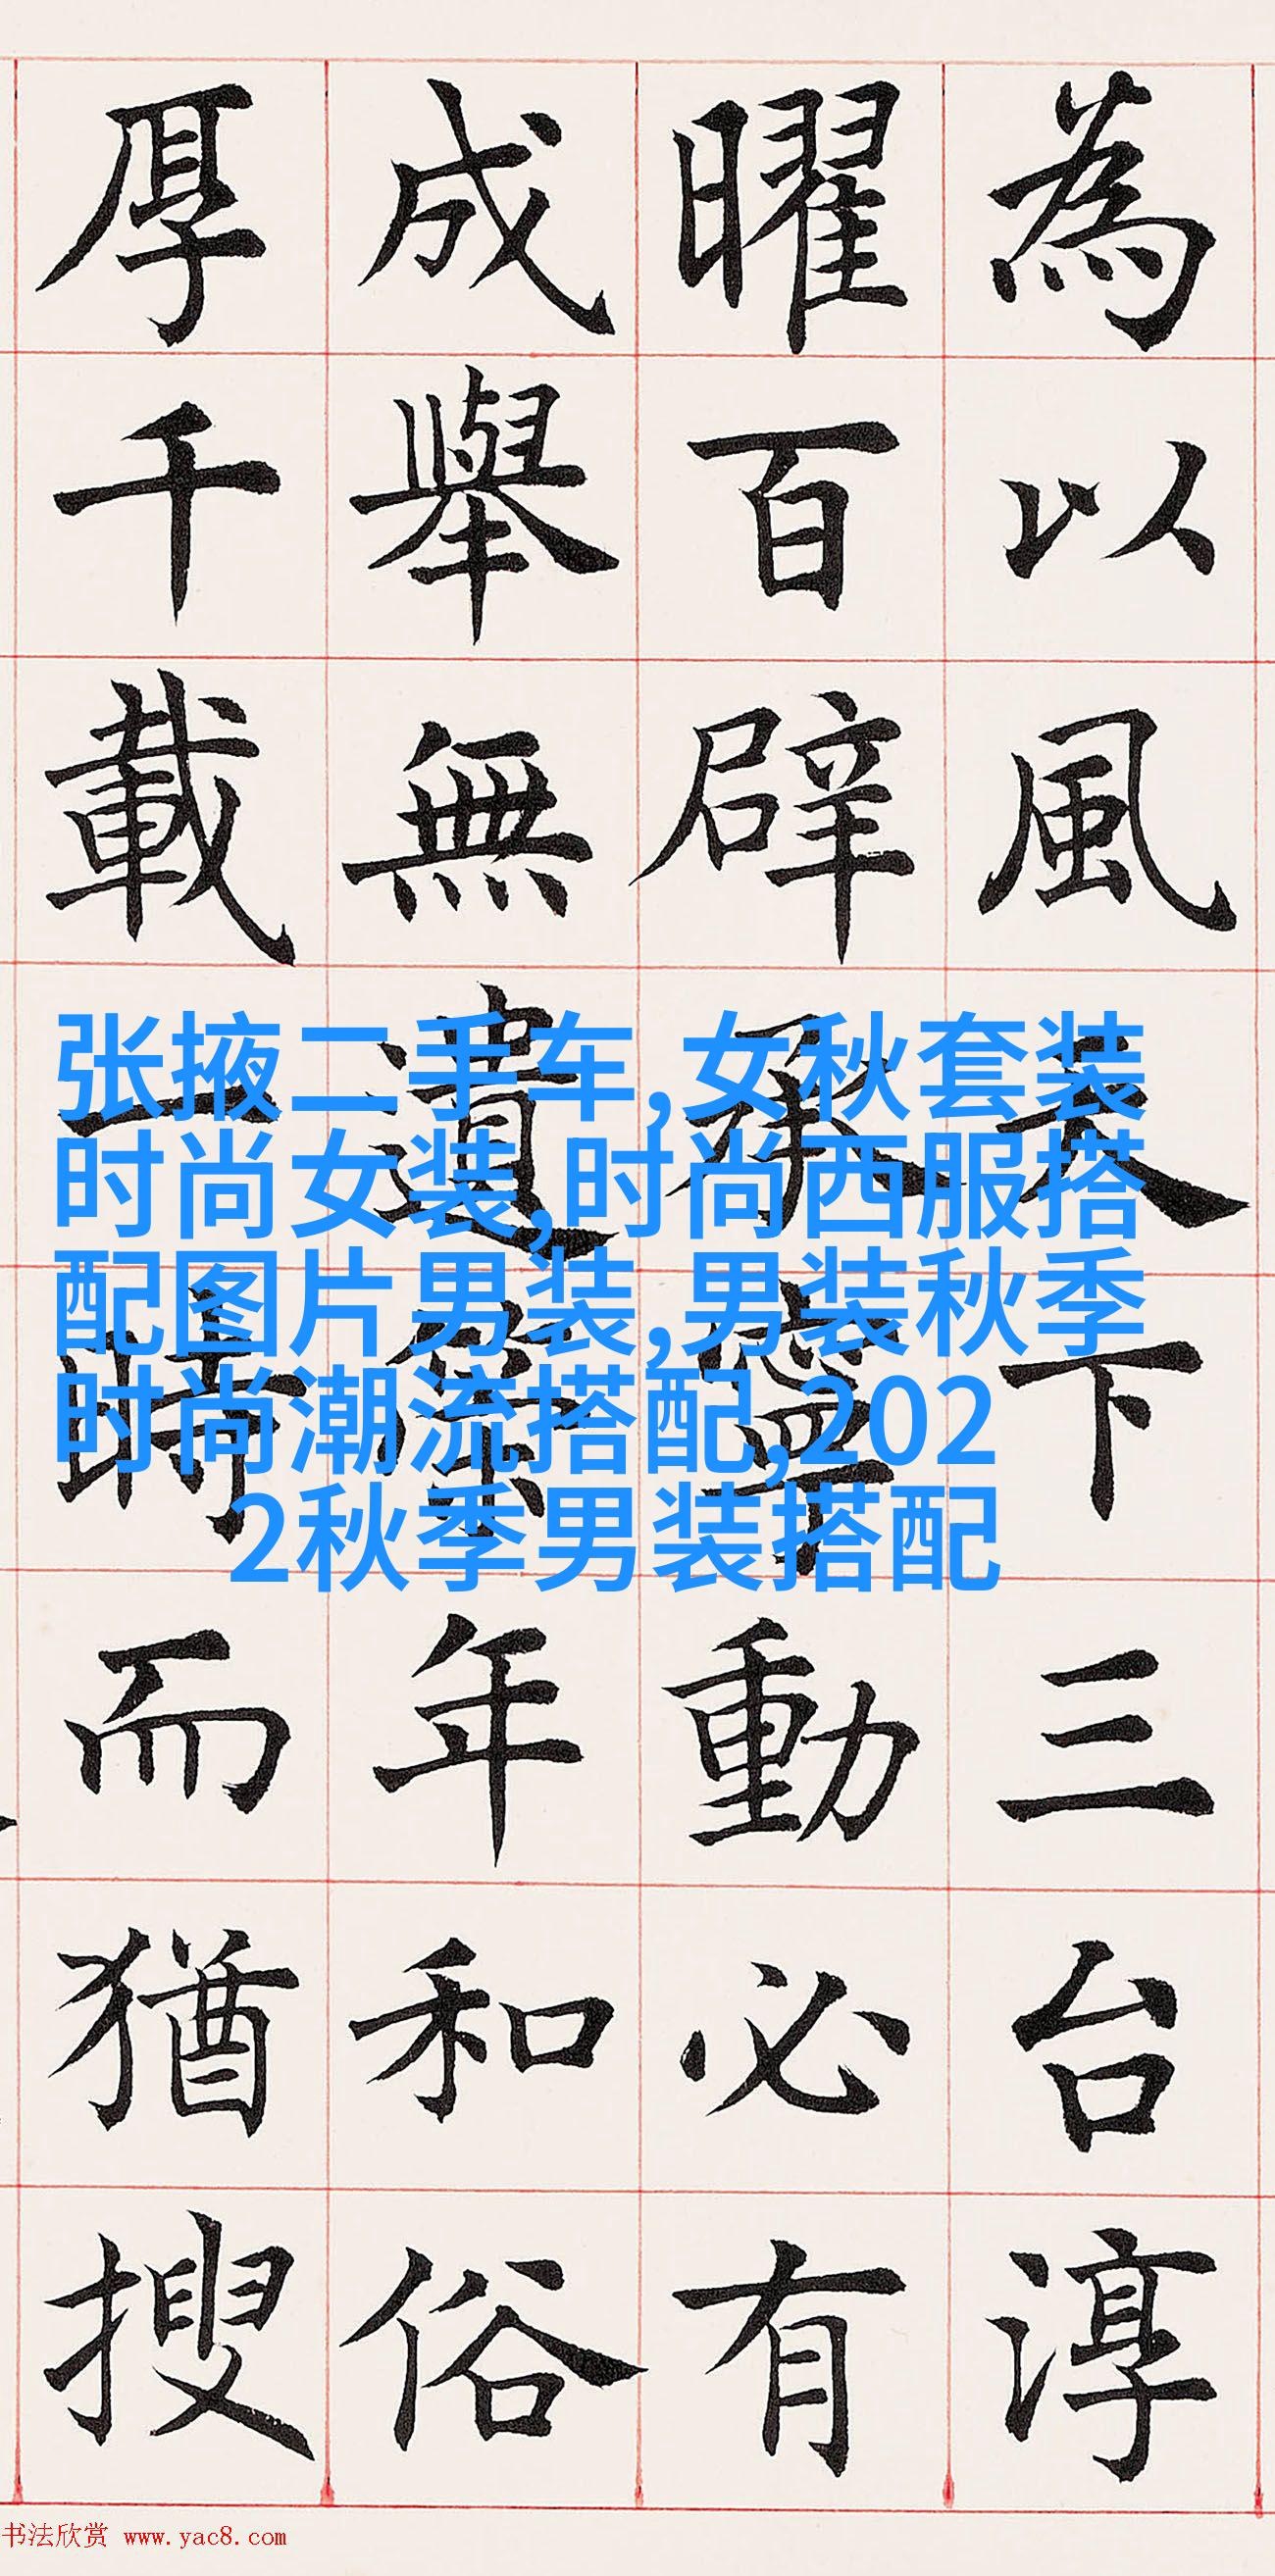 為以風天下三台淳
曜百辟承寧動必有
成舉無遺策年和俗
厚千載一時而猶搜
张掖二手车,女秋套装
时尚女装,时尚西服搭
配图片男装,男装秋季
时尚潮流搭配,202
2秋季男装搭配
书法欣赏 www.yac8.com